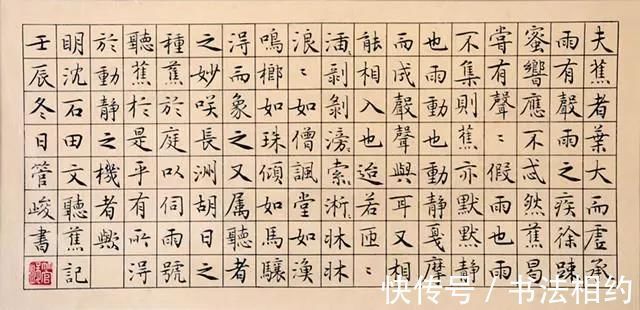 夫蕉者葉大而虛承
雨有聲雨之疾徐疎
蜜響應不忒然蕉曷
嘗有聲〻假雨也雨
不集則蕉亦默默靜
也雨動也動靜戛摩
而成聲聲與耳又相
能相入也迨若匝〻
剝剝滂索淅牀牀
浪〻如僧諷堂如漁
鳴榔如珠傾如馬驤
淂而象之又属聽者
之妙咲長洲胡日之
種蕉於庭以伺雨號
聽蕉於是乎有所淂
於動靜之機者歟
明沈石田文聽蕉記
壬辰冬日管峻書
快传号／书法相约